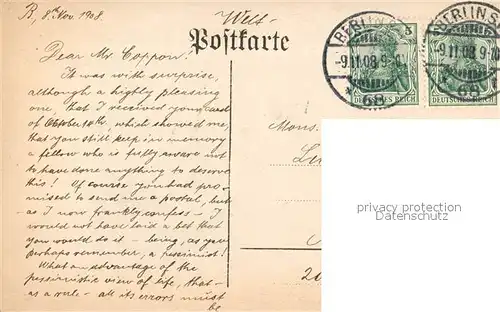 B, 8th Nov. 1908.
Welt-
Postkarte
Dear Mr Coppon!
It was with surprise,
although a highly pleasing
one that I received your card
of October 18th, which showed me,
that you still keep in memory
a fellow who is fully aware not
to have done anything to deserve
this! Of course you had pro-
mised to send me a postal, but
- as I now frankly confess - I
would not have laid a bet that
you would do it - being, as you
perhaps remember, a pessimist!
What an advantage of the
pessimistic view of life, that -
as a rule - all its errors must
be
BERLIN S
-9.11.08.9-
* 68
DEUTSCHES REICH
5
BERLIN S
-9.11.08.9-
* 68
DEUTSCHES REICH
Mons.
privacy protection
Datenschutz